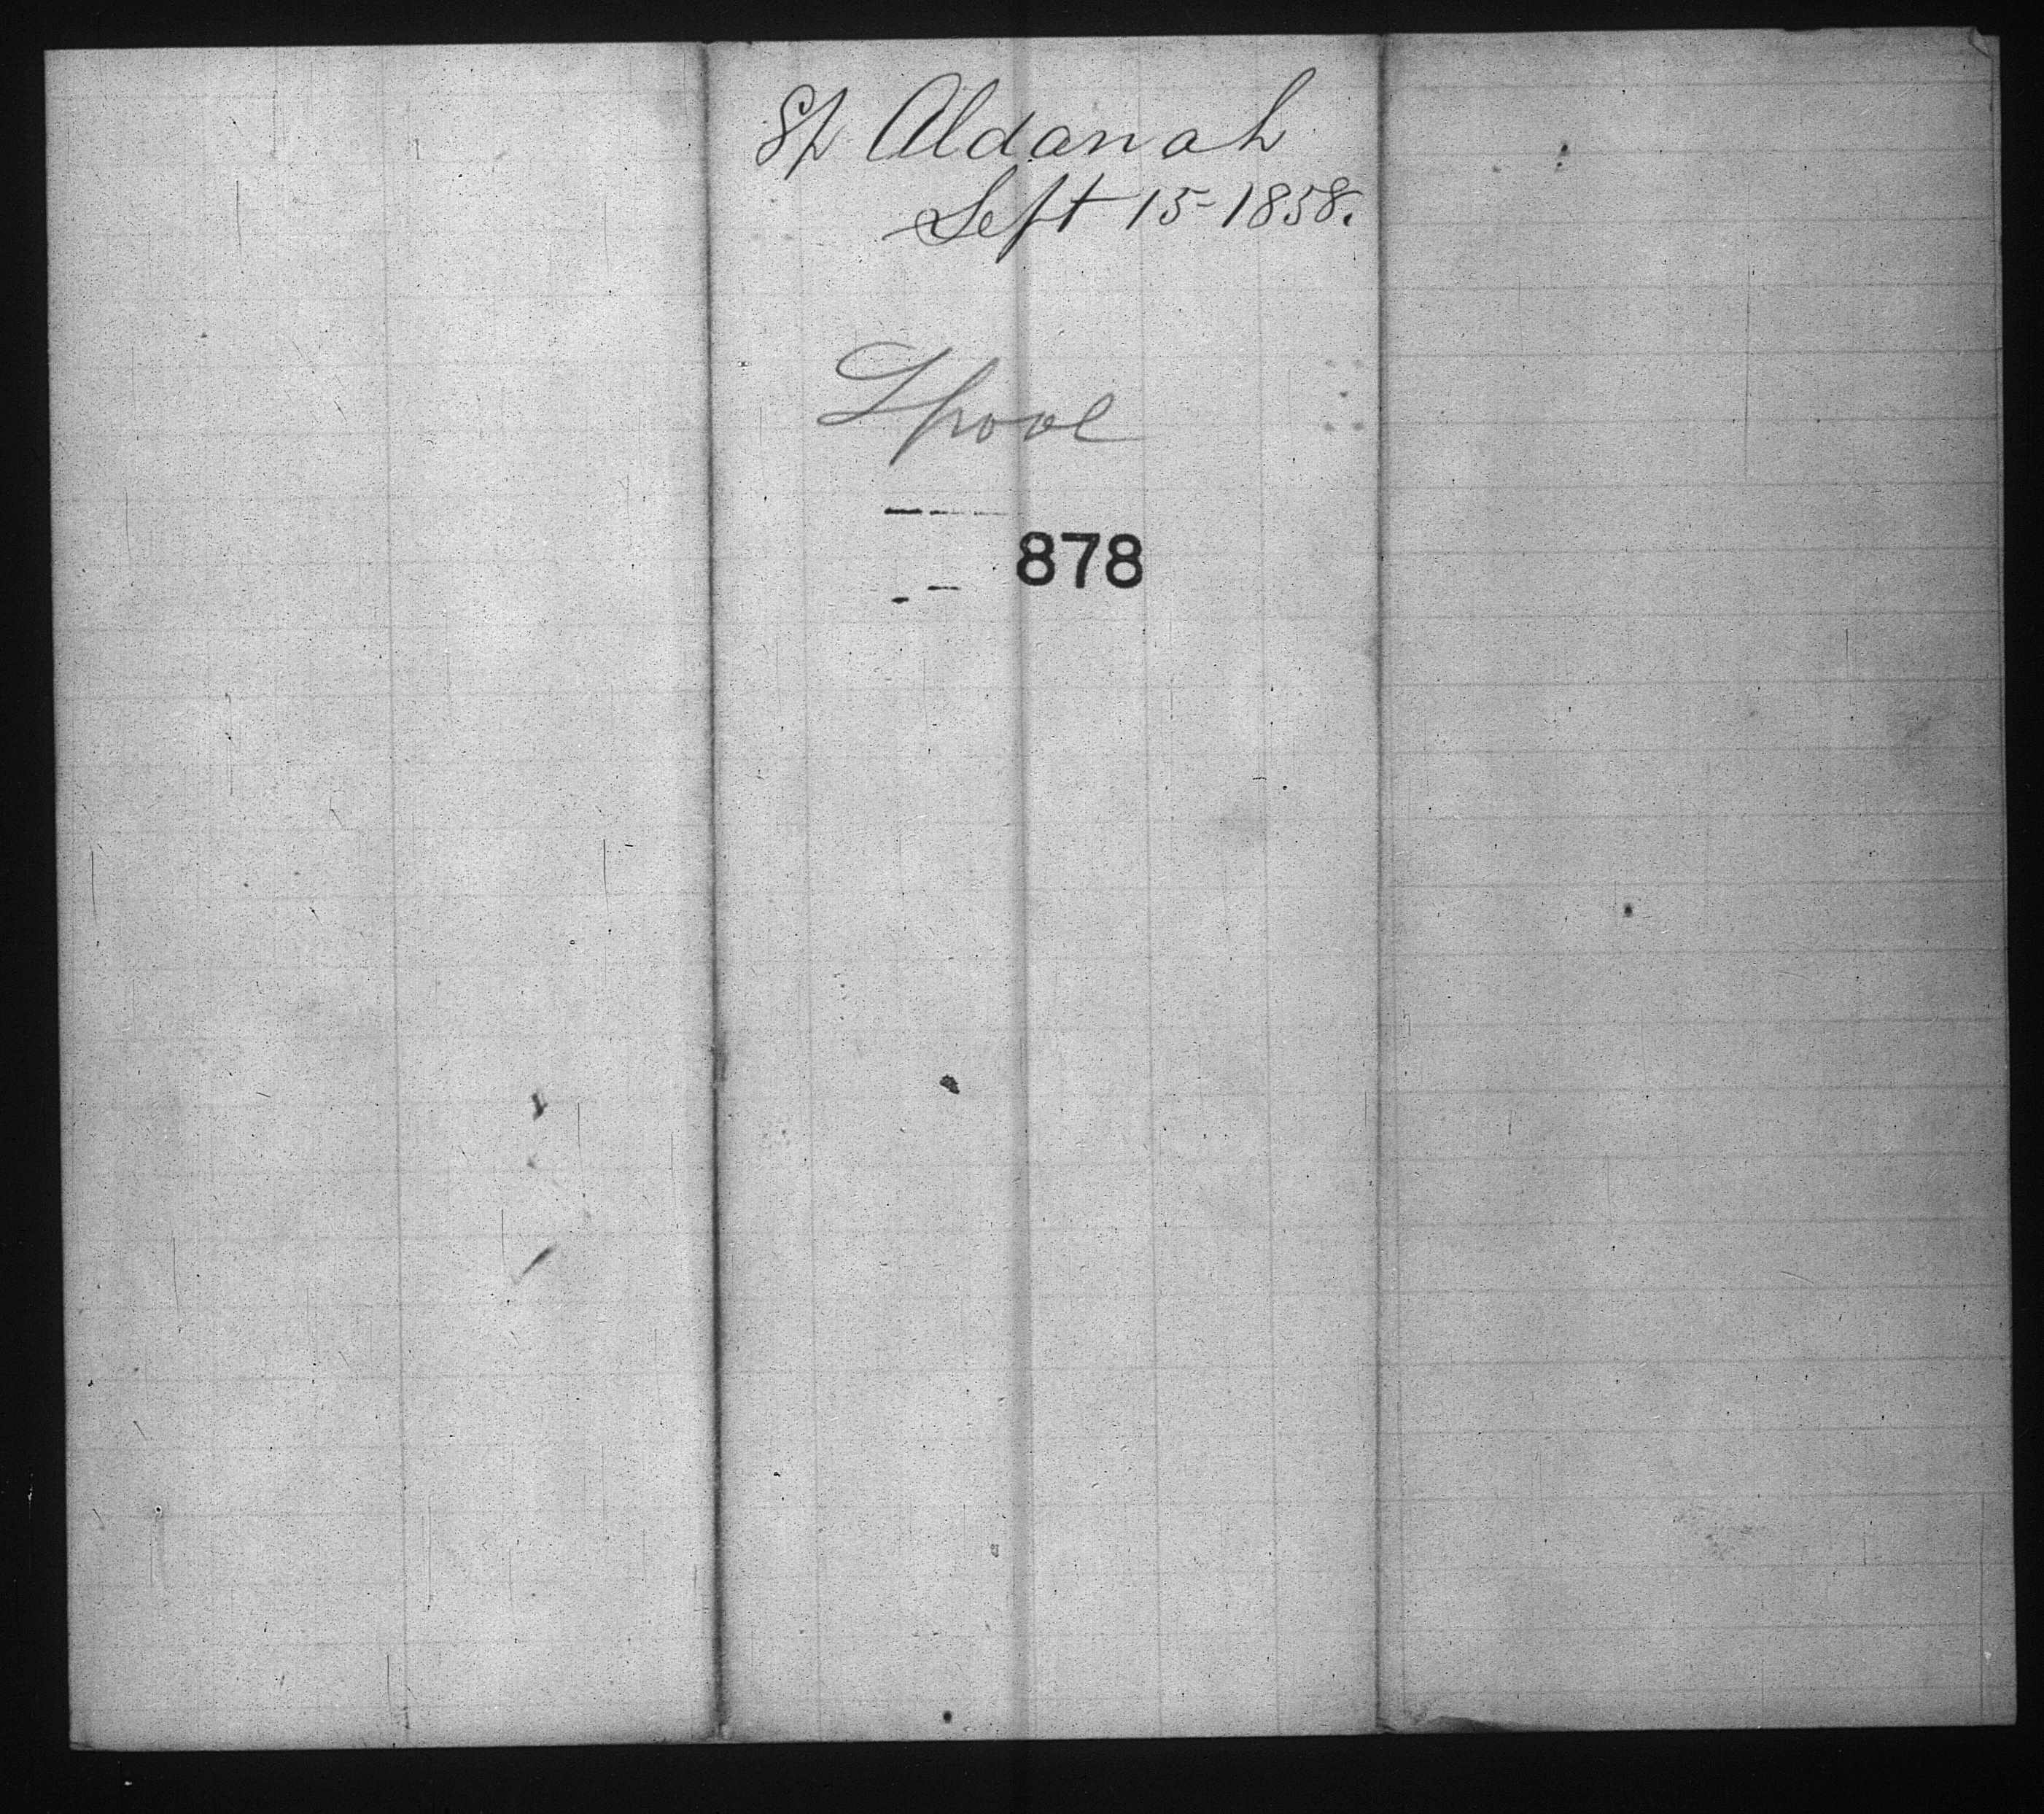 Sp Aldanah
Sept 15-1858.
Lpool
878